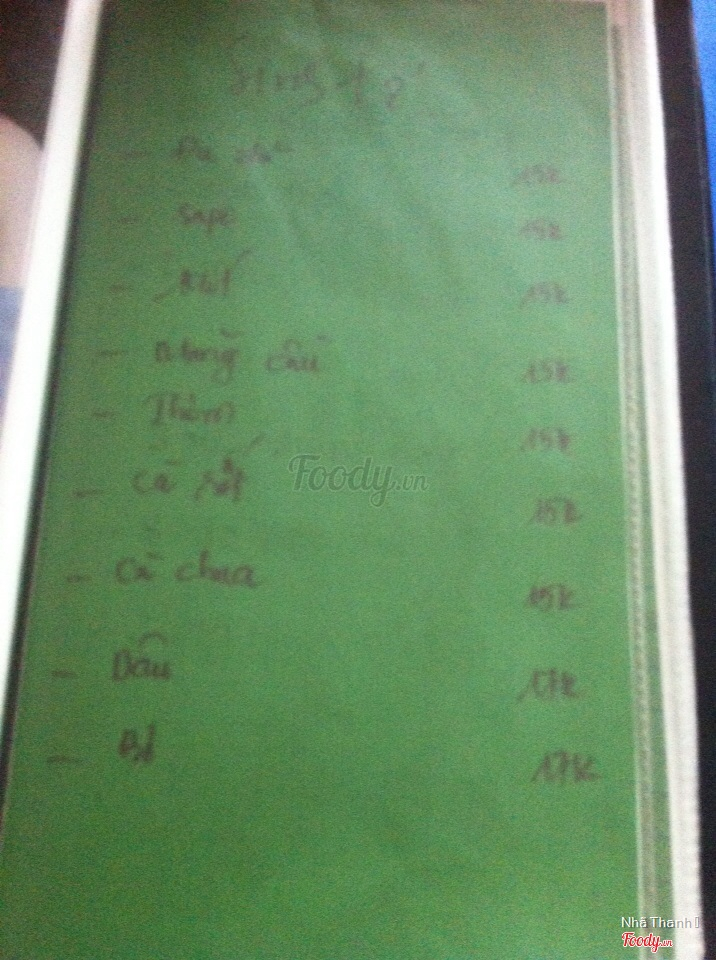 Sinh tố
- Sapo 15k
15k
15k
- Mãng cầu 15k
- Thơm 15k
- Cà rốt 15k
- Cà chua 15k
- Dâu 17k
- Bơ 17k
Foody.vn
Nhã Thanh
Foody.vn